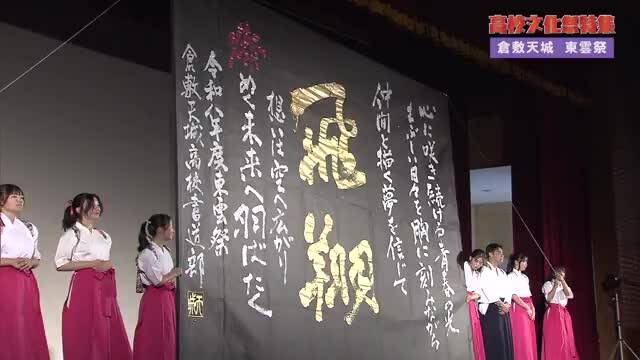 高校文化祭特集
倉敷天城 東雲祭
心に咲き続ける青春の火
まぶしい日々を胸に刻みながら
仲間と描く夢を信じて
飛翔
想いは空へ広がり
煌めく未来へ羽ばたく
令和八年度東雲祭
倉敷天城高校書道部